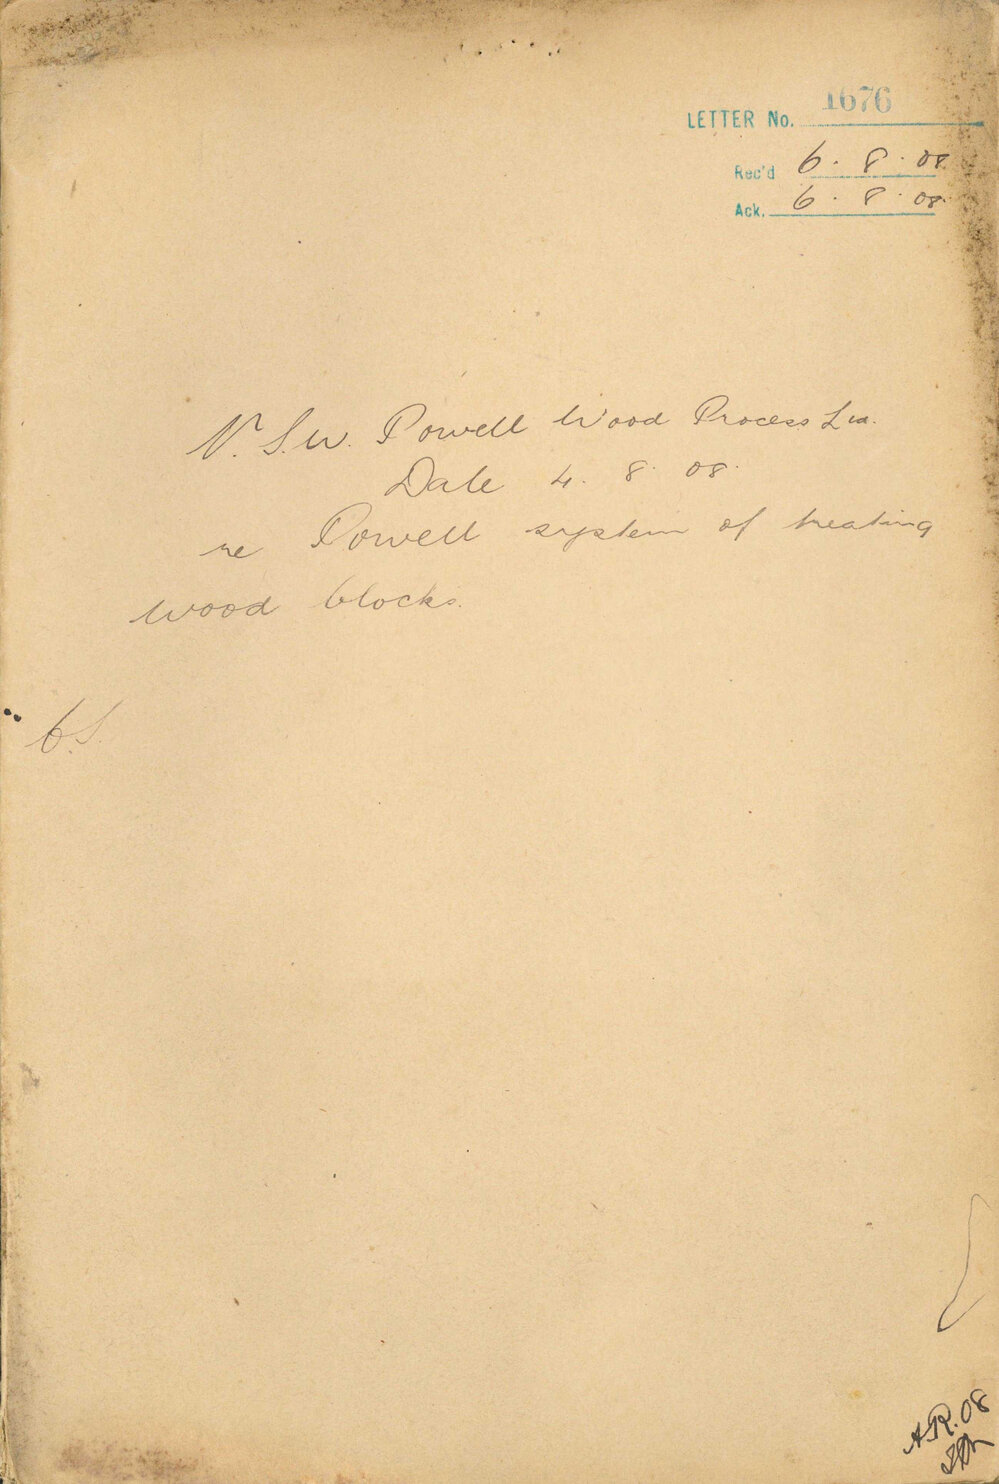 LETTER No. 1676
Rec'd 6. 8. 08
Ack. 6. 8. 08.
N.S.W. Powell Wood Process Ltd.
Date 4. 8. 08.
re Powell system of treating
wood blocks.
A.R. 08